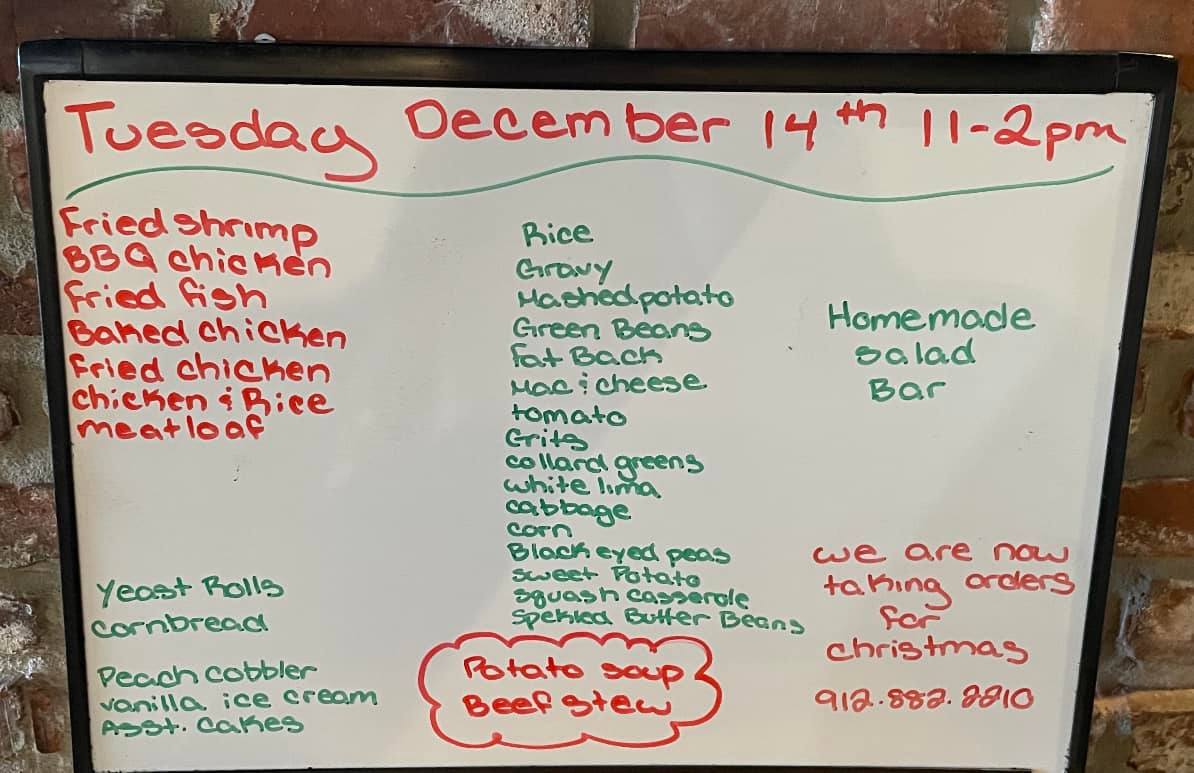 Tuesday December 14th 11-2pm
Fried shrimp
BBQ chicken
Fried fish
Baked chicken
Fried chicken
chicken & Rice
meatloaf
Yeast Rolls
cornbread
Peach cobbler
vanilla ice cream
Asst. cakes
Rice
Gravy
Mashed potato
Green Beans
Fat Back
Mac & cheese
tomato
Grits
collard greens
white lima
cabbage
corn
Black eyed peas
sweet Potato
squash casserole
Spekled Butter Beans
Potato soup
Beef stew
Homemade
salad
Bar
we are now
taking orders
for
christmas
912.882.2210